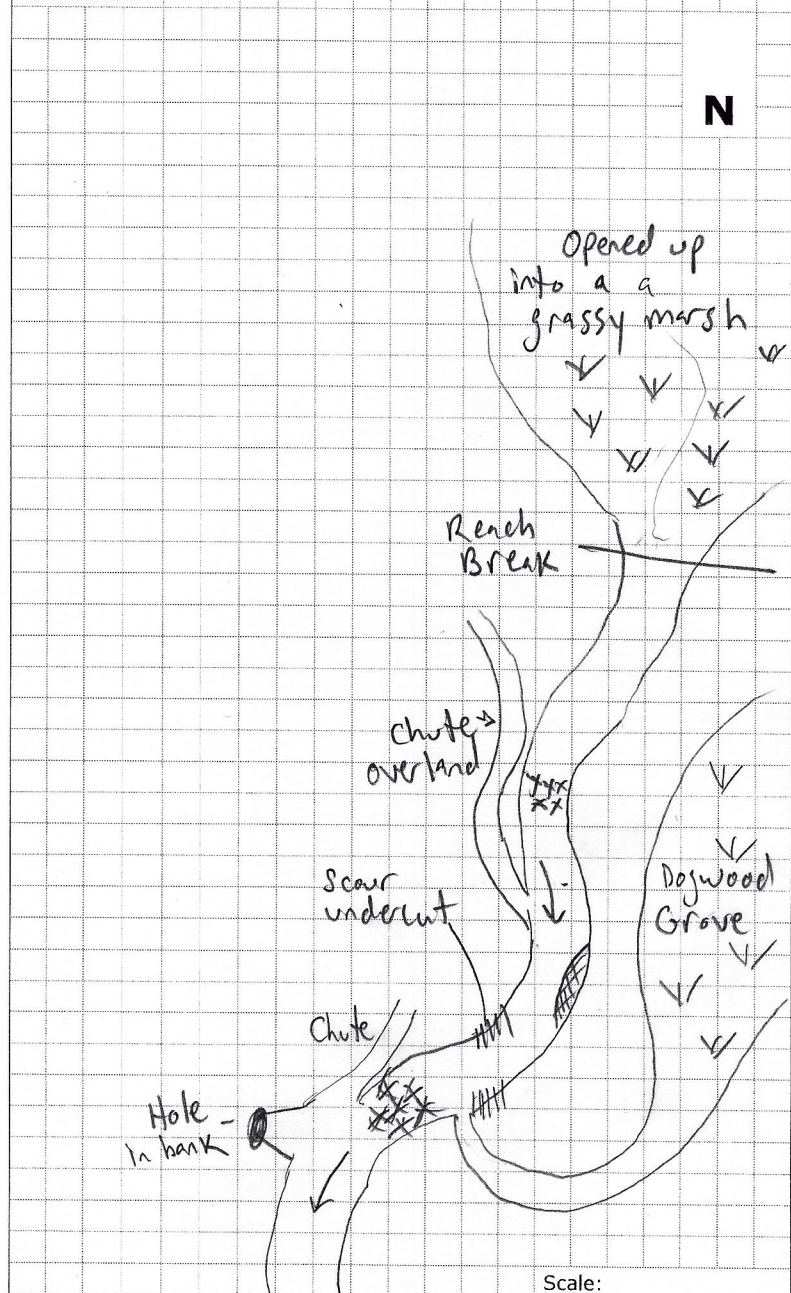 N
Opened up
into a a
grassy marsh
Reach
Break
Chute
overland
Scour
undercut
Dogwood
Grove
Chute
Hole
in bank
Scale: